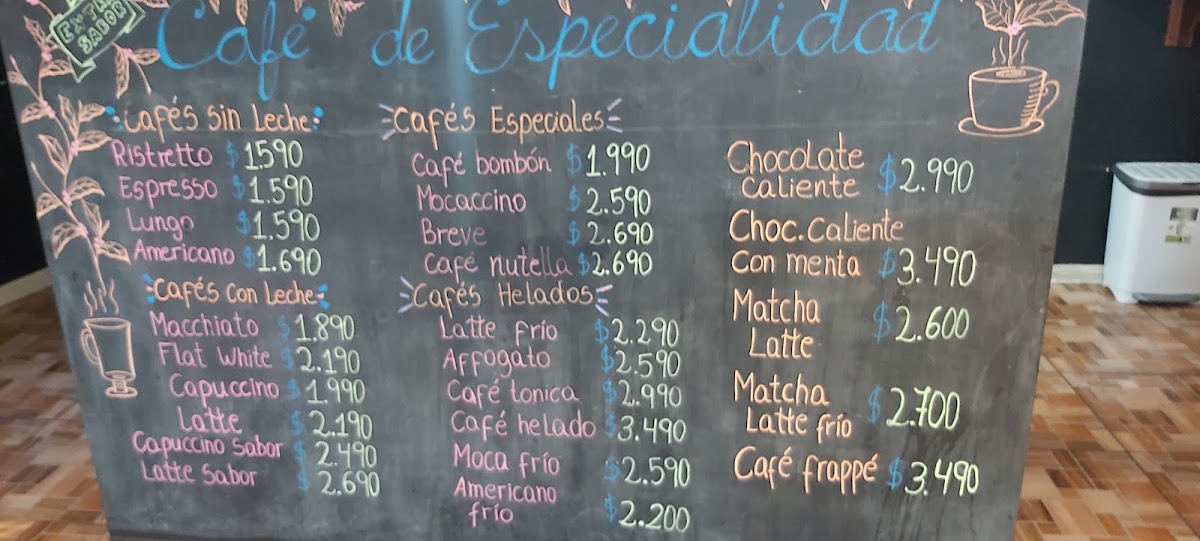 SABOR
Café de Especialidad
Cafés Sin Leche
Ristretto $1590
Espresso $1.590
Lungo $1.590
Americano $1.690
Cafés Con Leche
Macchiato $1.890
Flat White $2.190
Capuccino $1.990
Latte $2.190
Capuccino Sabor $2.490
Latte Sabor $2.690
Cafés Especiales
Café bombón $1.990
Mocaccino $2.590
Breve $2.690
Café nutella $2.690
Cafés Helados
Latte frío $2.290
Affogato $2.590
Café tonica $2.990
Café helado $3.490
Moca frío $2.590
Americano
frío $2.200
Chocolate
Caliente $2.990
Choc. Caliente
Con menta $3.490
Matcha
Latte $2.600
Matcha
Latte frío $2.700
Café frappé $3.490